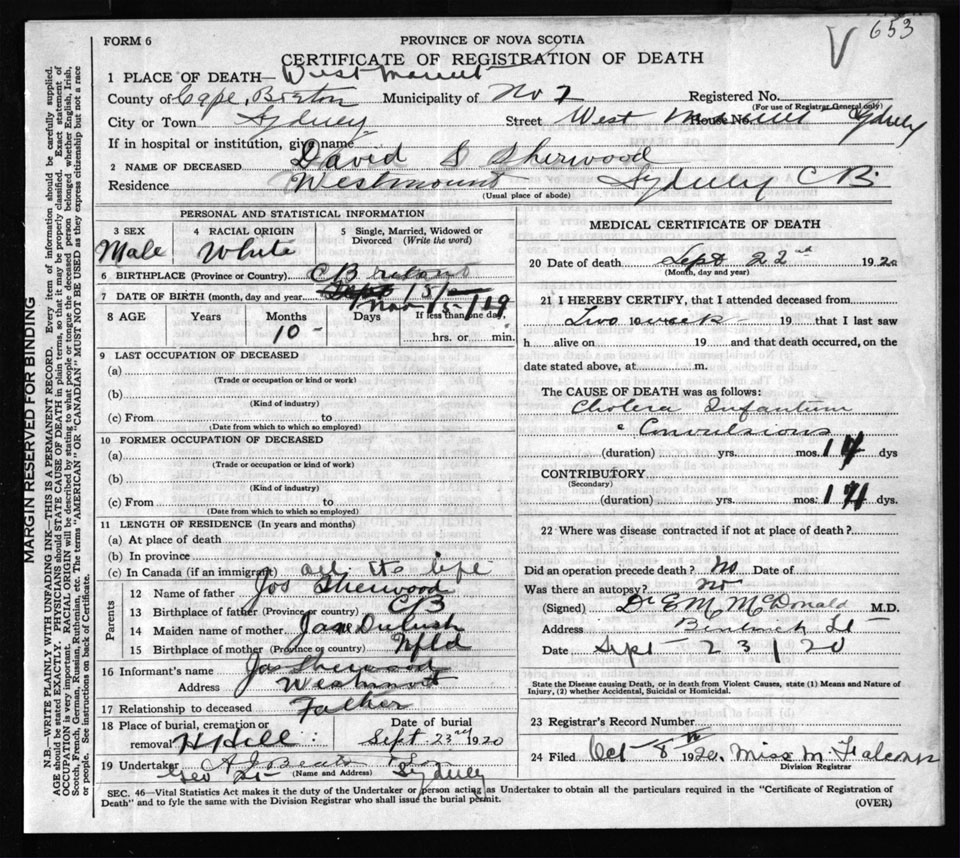 653
V
FORM 6
PROVINCE OF NOVA SCOTIA
CERTIFICATE OF REGISTRATION OF DEATH
1 PLACE OF DEATH— Westmount
County of Cape Breton Municipality of No 1 Registered No.
(For use of Registrar General only)
City or Town Sydney Street West Mount Sydney House No.
If in hospital or institution, give name
2 NAME OF DECEASED David S Sherwood
Residence Westmount Sydney CB.
(Usual place of abode)
PERSONAL AND STATISTICAL INFORMATION
3 SEX 4 RACIAL ORIGIN 5 Single, Married, Widowed or Divorced (Write the word)
Male White
6 BIRTHPLACE (Province or Country) CB
7 DATE OF BIRTH (month, day and year) Nov 15/19
8 AGE Years Months Days If less than one day,
10 - hrs. or min.
9 LAST OCCUPATION OF DECEASED
(a)
(Trade or occupation or kind or work)
(b)
(Kind of industry)
(c) From to
(Date from which to which so employed)
10 FORMER OCCUPATION OF DECEASED
(a)
(Trade or occupation or kind of work)
(b)
(Kind of industry)
(c) From to
(Date from which to which so employed)
11 LENGTH OF RESIDENCE (In years and months)
(a) At place of death
(b) In province
(c) In Canada (if an immigrant) all its life
Parents
12 Name of father Jos Sherwood
13 Birthplace of father (Province or country) CB
14 Maiden name of mother Jane
15 Birthplace of mother (Province or country) Nfld
16 Informant's name Jas Sherwood
Address Westmount
17 Relationship to deceased Father
18 Place of burial, cremation or Date of burial
removal H Hill Sept 23rd 1920
19 Undertaker A J Beaton & Son
Geo St (Name and Address) Sydney
MEDICAL CERTIFICATE OF DEATH
20 Date of death Sept 22nd 1920
(Month, day and year)
21 I HEREBY CERTIFY, that I attended deceased from
Two weeks 19 to 19 that I last saw
h alive on 19 and that death occurred, on the
date stated above, at m.
The CAUSE OF DEATH was as follows:
Cholera Infantum
& Convulsions
(duration) yrs. mos. 14 dys
CONTRIBUTORY
(Secondary)
(duration) yrs. mos. 14 dys.
22 Where was disease contracted if not at place of death?
Did an operation precede death? No Date of
Was there an autopsy? No
(Signed) Dr E M McDonald M.D.
Address Bentinck St
Date Sept 23/20
State the Disease causing Death, or in death from Violent Causes, state (1) Means and Nature of
Injury, (2) whether Accidental, Suicidal or Homicidal.
23 Registrar's Record Number
24 Filed Oct 8th 1920. Miss M
Division Registrar
SEC. 46—Vital Statistics Act makes it the duty of the Undertaker or person acting as Undertaker to obtain all the particulars required in the "Certificate of Registration of
Death" and to fyle the same with the Division Registrar who shall issue the burial permit.
(OVER)
MARGIN RESERVED FOR BINDING
N.B.—WRITE PLAINLY WITH UNFADING INK—THIS IS A PERMANENT RECORD. Every item of information should be carefully supplied.
AGE should be stated EXACTLY. PHYSICIANS should STATE CAUSE OF DEATH in plain terms, so that it may be properly classified. Exact statement of
OCCUPATION is very important. RACIAL ORIGIN will be described by stating to what people or tongue the deceased person belonged whether English, Irish,
Scotch, French, German, Russian, Ruthenian, etc. The terms "AMERICAN" OR "CANADIAN" MUST NOT BE USED as they express citizenship but not a race
or people. See instructions on back of Certificate.